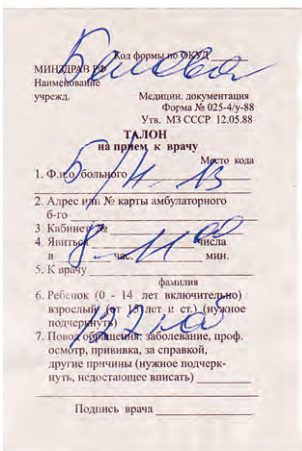 Код формы по ОКУД
МИНЗДРАВ РФ
Наименование
учрежд. Медицин. документация
Форма № 025-4/у-88
Утв. МЗ СССР 12.05.88
ТАЛОН
на прием к врачу
Место кода
1. Ф.и.о. больного
2. Адрес или № карты амбулаторного
б-го
3 Кабинет №
4. Явиться числа
8 - 11 00
в час. мин.
5. К врачу
фамилия
6. Ребенок (0 - 14 лет включительно)
взрослый (от 15 лет и ст.) (нужное
подчеркнуть)
7. Повод обращения: заболевание, проф.
осмотр, прививка, за справкой,
другие причины (нужное подчерк-
нуть, недостающее вписать)
Подпись врача